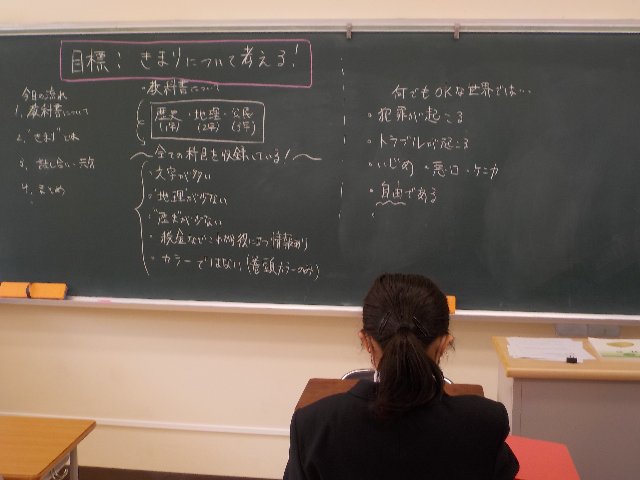 目標：きまりについて考える！
今日の流れ
1. 教科書について
2. "きまり"とは
3. 話し合い・共有
4. まとめ
・教科書について
歴史・地理・公民
(1年) (2年) (3年)
〜全ての科目を収録している！〜
・文字が多い
・"地理"が少ない
・"歴史"が少ない
・税金などこれから役に立つ情報あり
・カラーではない(巻頭カラーのみ)
何でもOKな世界では…
・犯罪が起こる
・トラブルが起こる
・いじめ・悪口・ケンカ
・自由である